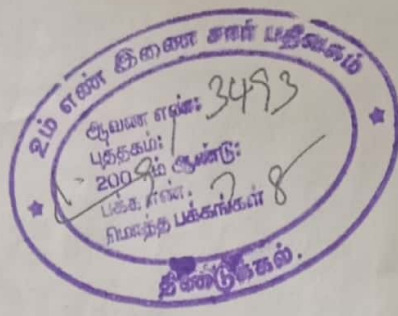 2ம் எண் இணை சார் பதிவகம்
ஆவண எண்: 3493
புத்தகம்: 1
200 ம் ஆண்டு:
பக்க எண்.
மொத்த பக்கங்கள் 8
திண்டுக்கல்.